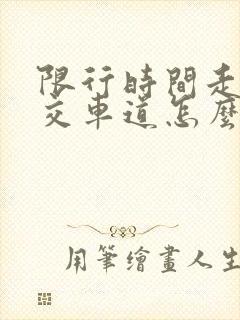 限行時間走
交車道怎麼
用筆繪畫人生